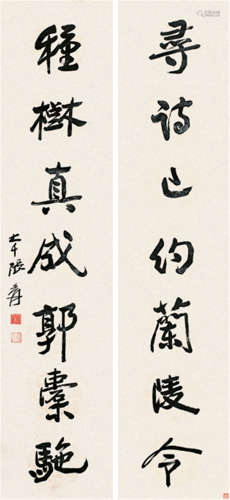 尋詩已約蘭陵令
種樹真成郭橐駞
大千張爰